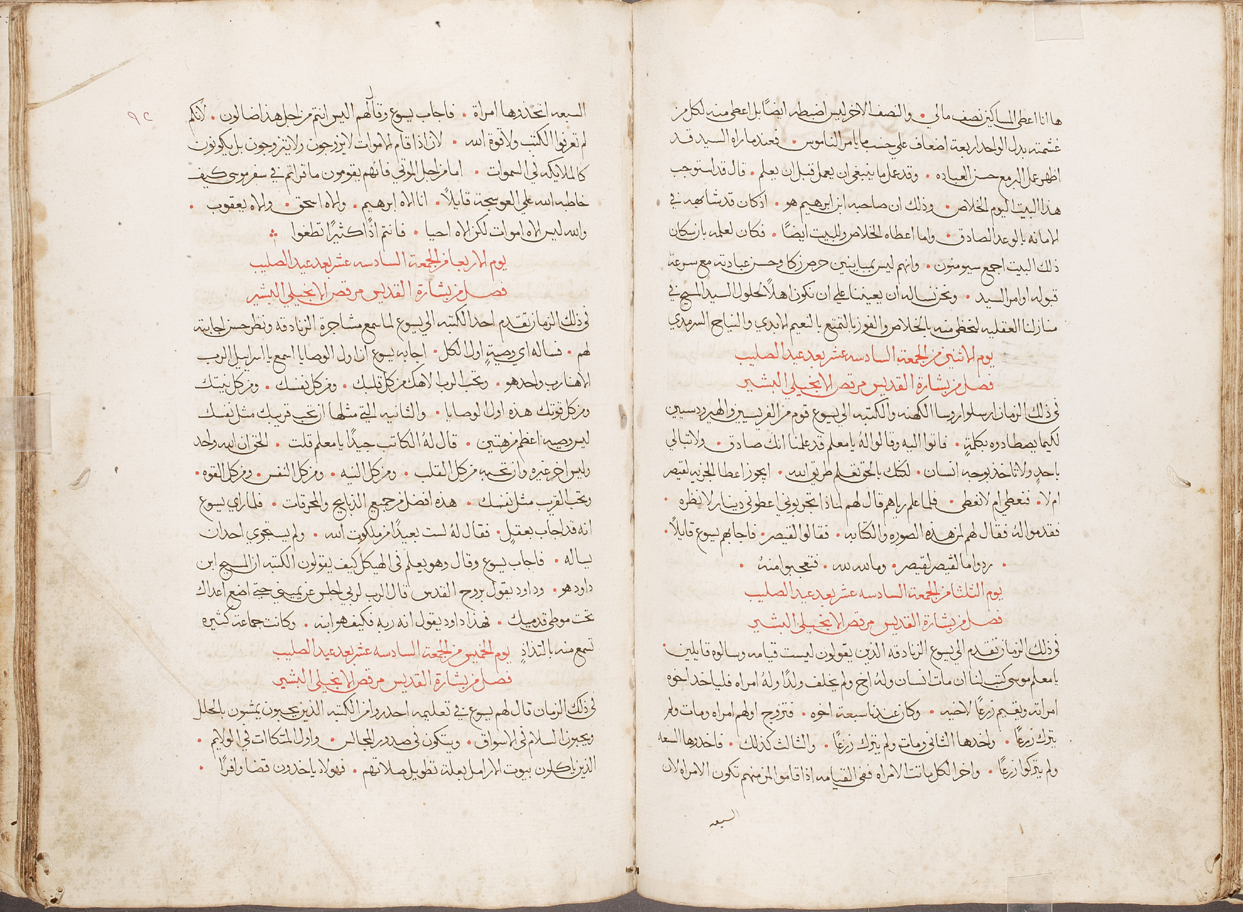 ها انا اعطي المساكين نصف مالي • والنصف الاخر ليس اضبطه ايضًا بل اعطي منه لكل من
غشمته بدل الواحد اربعة اضعاف علي حسب ما يامر الناموس • فعندما راه السيد قد
اظهر عمل البر مع حسن العباده • وقد عمل ما ينبغي ان يعمل قبل ان يعلم • قال قد استوجب
هذا البيت اليوم الخلاص • وذلك ان صاحبه ابن ابرهيم هو • اذ كان قد شابهه في
الامانه بالوعد الصادق • وانما اعطاه الخلاص وللبيت ايضًا • فكان لعلمه بان سكان
ذلك البيت اجمع سيومنون • وانهم ليس بمباينين حرص زكا وحسن عبادته مع سرعة
قبوله اوامر السيد • ونحن نساله ان يعيننا علي ان نكون اهلاً لحلول السيد المسيح في
منازلنا العقليه لنحظي منه بالخلاص والفوز بالتمتع بالنعيم الابدي والنياح السرمدي
يوم الاثنين من الجمعة السادسه عشر بعد عيد الصليب
فصل من بشارة القديس مرقص الانجيلي البشير
في ذلك الزمان ارسلوا روسا الكهنه والكتبه الي يسوع قوم من الفريسيين والهيرودسيين
لكيما يصطادوه بكلمةٍ • فاتوا اليه وقالوا له يا معلم قد علمنا انك صادق • ولا تبالي
باحدٍ ولا تاخذ بوجه انسان • لكنك بالحق تعلم طريق الله • ايجوز اعطا الجزيه لقيصر
ام لا • فنعطي ام لا نعطي • فلما علم رياهم قال لهم لماذا تجربوني اعطوني دينار لانظره •
فقدموا له فقال لهم لمن هذه الصوره والكتابه • فقالوا لقيصر • فاجابهم يسوع قايلاً •
• ردوا ما لقيصر لقيصر • وما لله لله • فتعجبوا منهُ •
يوم الثلثا من الجمعة السادسه عشر بعد عيد الصليب
فصل من بشارة القديس مرقص الانجيلي البشير
في ذلك الزمان تقدم الي يسوع الزنادقه الذين يقولون ليست قيامه وسالوه قايلين •
يا معلم موسي كتب لنا ان مات انسان وله اخ ولم يخلف ولدًا وله امراه فلياخذ اخوه
امراته ويقيم زرعًا لاخيه • وكان عندنا سبعة اخوه • فتزوج اولهم امراه ومات ولم
يترك زرعًا • واخدها الثاني ومات ولم يترك زرعًا • والثالث كذلك • فاخدوها السبعه
ولم يتركوا زرعًا • واخر الكل ماتت الامراه ففي القيامه اذا قاموا لمن منهم تكون الامراه لان
السبعه
٩٢
السبعه اتخذوها امراة • فاجاب يسوع وقال لهم اليس انتم من اجل هذا ضالون • لانكم
لم تعرفوا الكتب ولا قوة الله • لان اذا قام الاموات لا يزوجون ولا يتزوجون بل يكونون
كالملايكه في السموات • اما من اجل الموتي فانهم يقومون ما قراتم في سفر موسي كيف
خاطبه الله علي العوسجة قايلاً • انا الاه ابرهيم • والاه اسحق • والاه يعقوب •
والله ليس الاه اموات لكن الاه احيا • فانتم اذًا كثيرًا تطغوا
يوم الاربعا من الجمعة السادسه عشر بعد عيد الصليب
فصل من بشارة القديس مرقص الانجيلي البشير
في ذلك الزمان تقدم احد الكتبه الي يسوع لما سمع مشاجرة الزنادقه ونظر حسن اجابته
لهم • فساله اي وصيةٍ اولة الكل • اجابه يسوع ان اول الوصايا اسمع يا اسراييل الرب
الاهنا رب واحد هو • وتحب الرب الاهك من كل قلبك • ومن كل نفسك • ومن كل نيتك
ومن كل قوتك هذه اولة الوصايا • والثانيه التي مثلها ان تحب قريبك مثل نفسك
ليس وصيه اعظم من هتين • قال لهُ الكاتب جيدًا يا معلم قلت • الحق ان الله واحد
وليس اخر غيره وان تحبه من كل القلب • ومن كل النيه • ومن كل النفس • ومن كل القوه •
وتحب القريب مثل نفسك • هذه افضل من جميع الذبايح والمحرقات • فلما راي يسوع
انه قد اجاب بعقلٍ • فقال لهُ لست بعيدًا من ملكوت الله • ولم يستجري احد ان
يساله • فاجاب يسوع وقال وهو يعلم في الهيكل كيف يقولون الكتبه ان المسيح ابن
داود هو • وداود يقول بروح القدس قال الرب لربي اجلس عن يميني حتي اضع اعداك
تحت موطي قدميك • فهذا داود يقول انه ربه فكيف هو ابنه • وكانت جماعة كثيره
تسمع منه بالتداذٍ يوم الخميس من الجمعة السادسه عشر بعد عيد الصليب
فصل من بشارة القديس مرقص الانجيلي البشير
في ذلك الزمان قال لهم يسوع في تعليمه احدروا من الكتبه الذين يحبون يمشون بالحلل
ويحبون السلام في الاسواق • ويتكون في صدور المجالس • واول المتكات في الولايم •
الذين ياكلون بيوت الارامل بعلة تطويل صلاتهم • فهولاء ياخدون قضاً وافرًا •